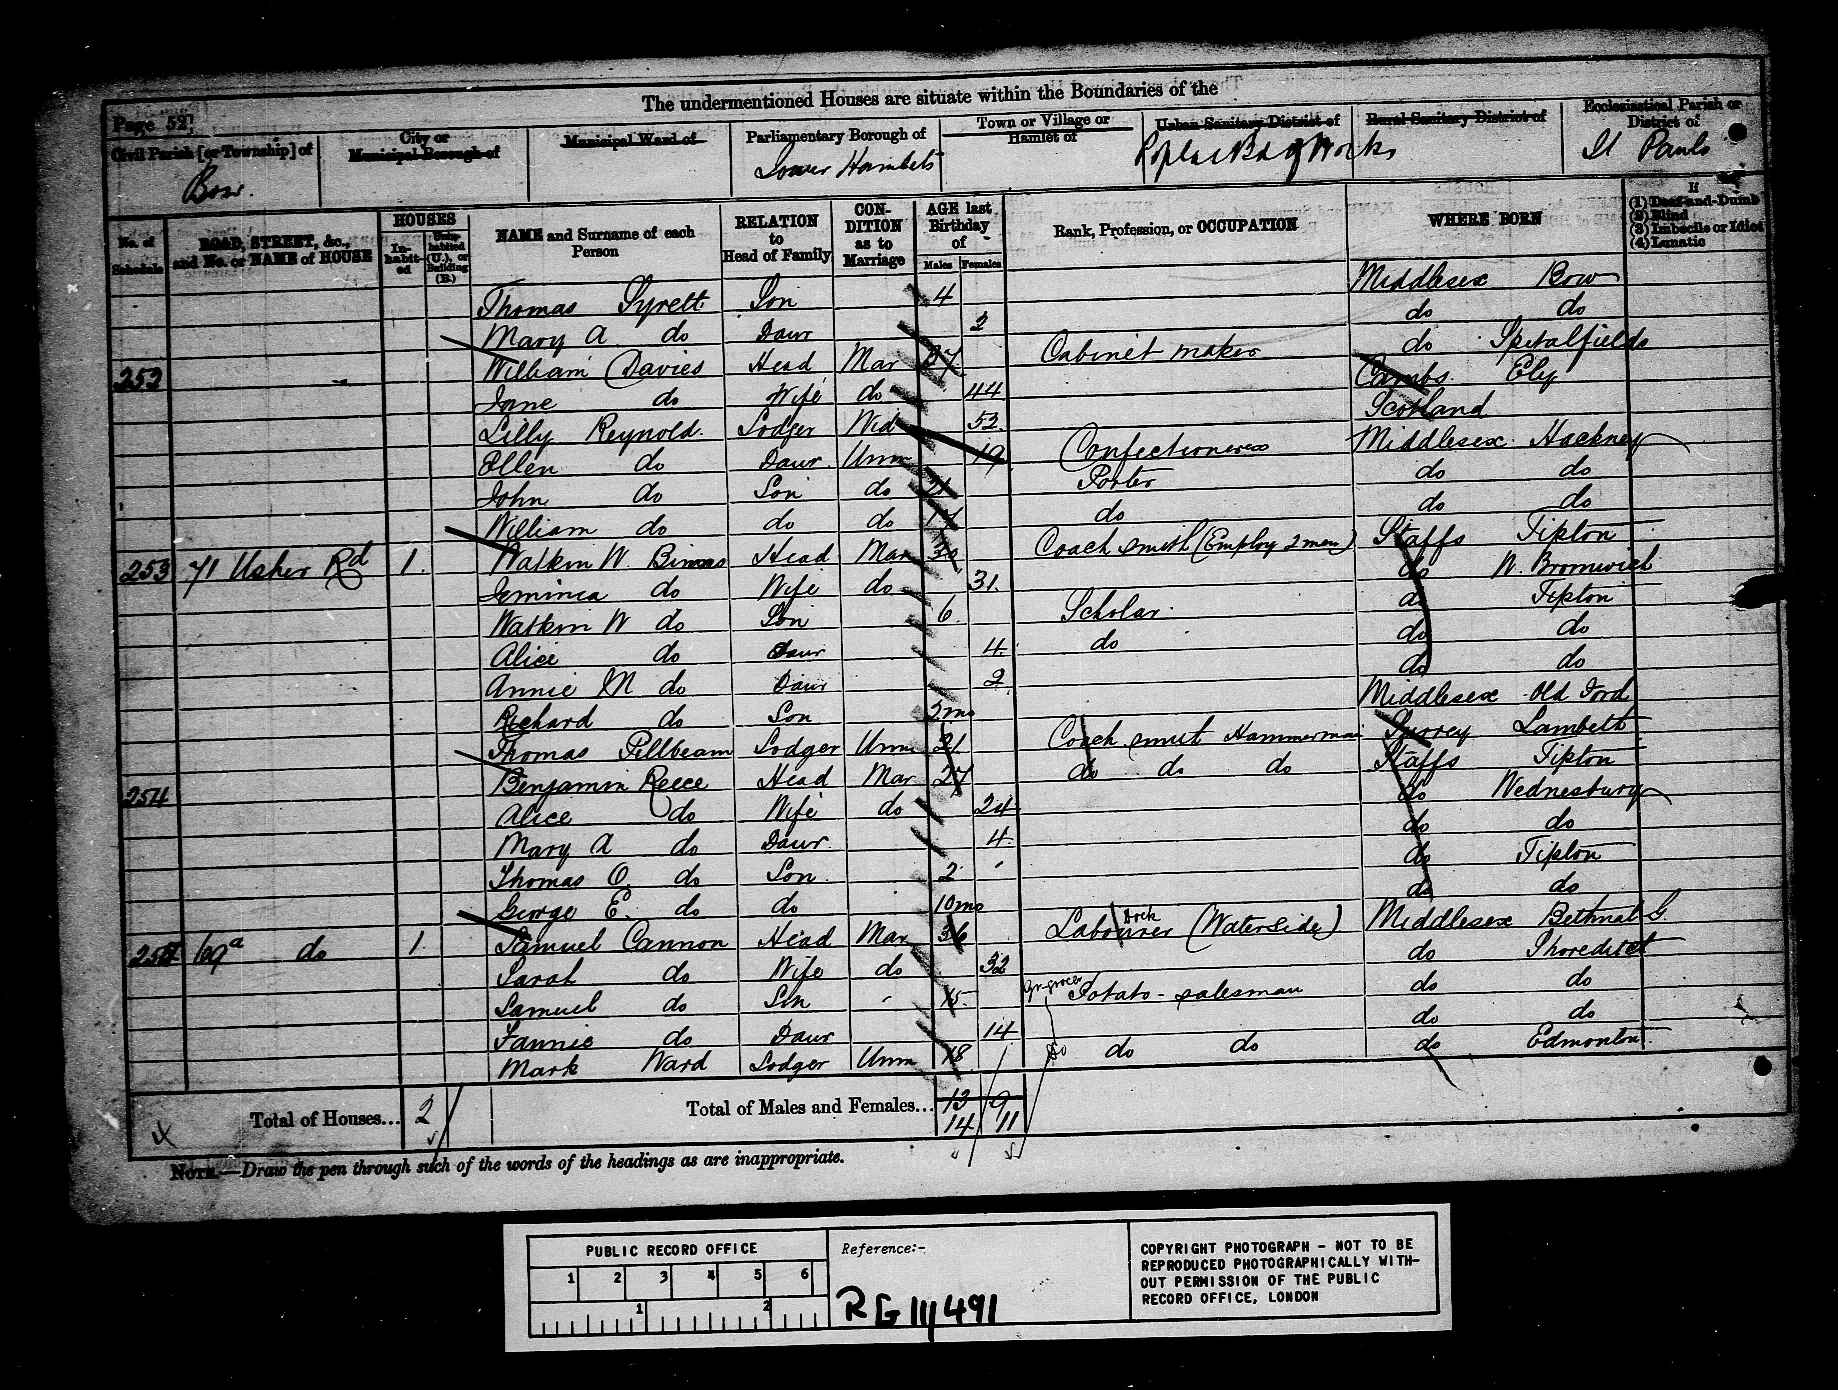 The undermentioned Houses are situate within the Boundaries of the
Page 52
Civil Parish [or Township] of
Bow.
City or
Municipal Borough of
Municipal Ward of
Parliamentary Borough of
Tower Hamlets
Town or Village or
Hamlet of
Urban Sanitary District of
Poplar Bd of Works
Rural Sanitary District of
Ecclesiastical Parish or
District of
St Pauls
No. of
Schedule
ROAD, STREET, &c.,
and No. or NAME of HOUSE
HOUSES
In-
habit-
ed
Unin-
habited
(U.), or
Building
(B.)
NAME and Surname of each
Person
RELATION
to
Head of Family
CON-
DITION
as to
Marriage
AGE last
Birthday
of
Males Females
Rank, Profession, or OCCUPATION
WHERE BORN
If
(1) Deaf-and-Dumb
(2) Blind
(3) Imbecile or Idiot
(4) Lunatic
Thomas Syrett Son 4 Middlesex Bow
Mary A do Daur 2 do do
252 William Davies Head Mar Cabinet maker do Spitalfields
Jane do Wife do 44 Cambs Ely
Lilly Reynold. Lodger Wid 53 Scotland
Ellen do Daur Unm 19 Confectioneress Middlesex Hackney
John do Son do Porter do do
William do do do 17 do do do
253 71 Usher Rd 1. Watkin W. Binns Head Mar 30 Coach smith (Employ 2 men) Staffs Tipton
Jemima do Wife do 31. do W. Bromwich
Watkin W do Son 6 Scholar. do Tipton
Alice do Daur 4. do do do
Annie M do Daur 2 do do
Richard do Son 2mo Middlesex Old Ford
Thomas Pillbeam Lodger Unm 21 Coach smith Hammerman Surrey Lambeth
254 Benjamin Reece Head Mar 27 do do do Staffs Tipton
Alice do Wife do 24 do Wednesbury
Mary A do Daur 4. do do
Thomas O. do Son 2 do Tipton
George E. do do 10mo do do
255 69a do 1 Samuel Cannon Head Mar 36 Labourer Dock (Waterside) Middlesex Bethnal G.
Sarah do Wife do 32 do Shoreditch
Samuel do Son 15 Gr-grocer Potato-salesman do do
Fannie do Daur 14 do do
Mark Ward Lodger Unm 18 do do do do Edmonton
Total of Houses... 2
Total of Males and Females... 13 9
14 11
NOTE.—Draw the pen through such of the words of the headings as are inappropriate.
PUBLIC RECORD OFFICE
1 2 3 4 5 6
1 2
Reference:-
RG 11/491
COPYRIGHT PHOTOGRAPH - NOT TO BE
REPRODUCED PHOTOGRAPHICALLY WITH-
OUT PERMISSION OF THE PUBLIC
RECORD OFFICE, LONDON